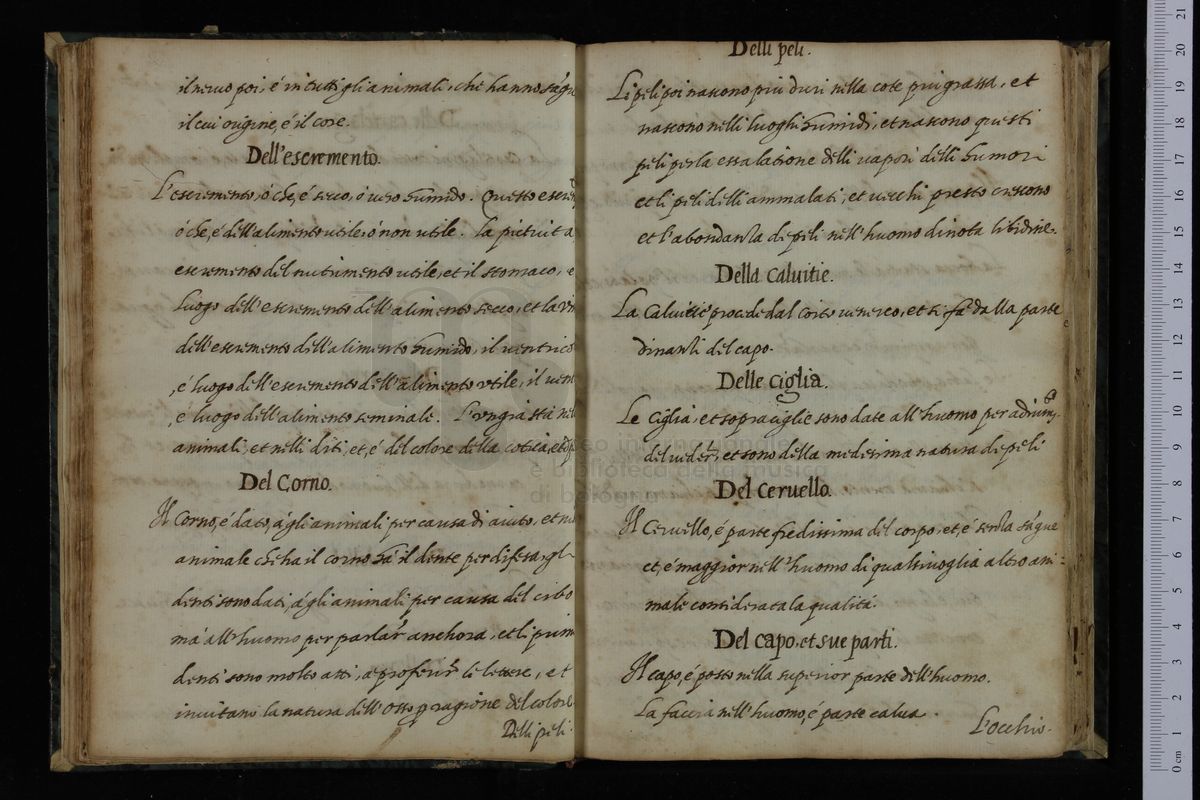 il neruo poi, é in tutti gli animali, che hanno sàgu
il cui origine, é il core.
Dell'escremento.
L'escremento, ò che, é secco, ò uero humido. Questo escrem
ò che, é dell'alimento utile, ò non utile. La pictuita
escremento del nutrimento utile, et il stomaco, é
luogo dell'escremento dell'alimento secco, et la
dell'escremento dell'alimento humido, il uentrico
, é luogo dell'escremento dell'alimento utile, il
é luogo dell'alimento seminale. L'ungia stà nel
animali, et nelli diti, et, é del colore della
Del Corno.
Il Corno, é dato, à gli animali per causa di aiuto, et
animale che ha il corno hà il dente per difesa, gl
denti sono dati, à gli animali per causa del cibo
mà all'huomo per parlar anchora, et li prim
denti sono molto atti, à proferir le lettere, et
inuitano la natura dell'osso p ragione del colore
Delli peli.
Delli peli.
Li peli poi nascono piu duri nella cote piu grassa, et
nascono nelli luoghi humidi, et nascono questi
peli per la essalatione delli uapori delli humori
et li peli delli ammalati, et uecchi presto crescono
et l'abondanza di peli nell'huomo dinota libidine.
Della Caluitie.
La Caluitie procede dal coito uenereo, et si fà dalla parte
dinanzi del capo.
Delle Ciglia.
Le Ciglia, et sopraciglie sono date all'huomo per
del ueder, et sono della medesima natura di peli
Del Ceruello.
Il Ceruello, é parte fredissima del corpo, et, é senza sàgue
et, é maggior nell'huomo di qualsiuoglia altro ani=
male considerata la qualitá.
Del capo, et sue parti.
Il capo, é posto nella superior parte dell'huomo.
La faccia nell'huomo, é parte calua.
L'occhio.
museo internazionale
e biblioteca della musica
di bologna
0 cm 1 2 3 4 5 6 7 8 9 10 11 12 13 14 15 16 17 18 19 20 21